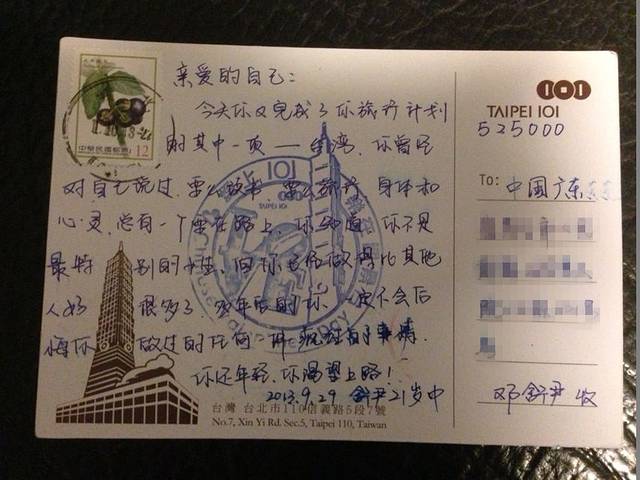 亲爱的自己：
今天你又完成了你旅行计划
的其中一项——台湾，你曾经
对自己说过，要么读书，要么旅行，身体和
心灵，总有一个要在路上，你知道，你不是
最特别的
但你已经做得比其他
人好很多了，多年后的你一定不会后
悔你做过的任何一件疯狂的事情。
你还年轻，你渴望上路！
2013.9.29 舒尹21岁中
台灣 台北市110信義路5段7號
No.7, Xin Yi Rd. Sec.5, Taipei 110, Taiwan
中華民國郵票
12
TAIPEI 101
TAIPEI 101
525000
To: 中国广东
邓舒尹 收